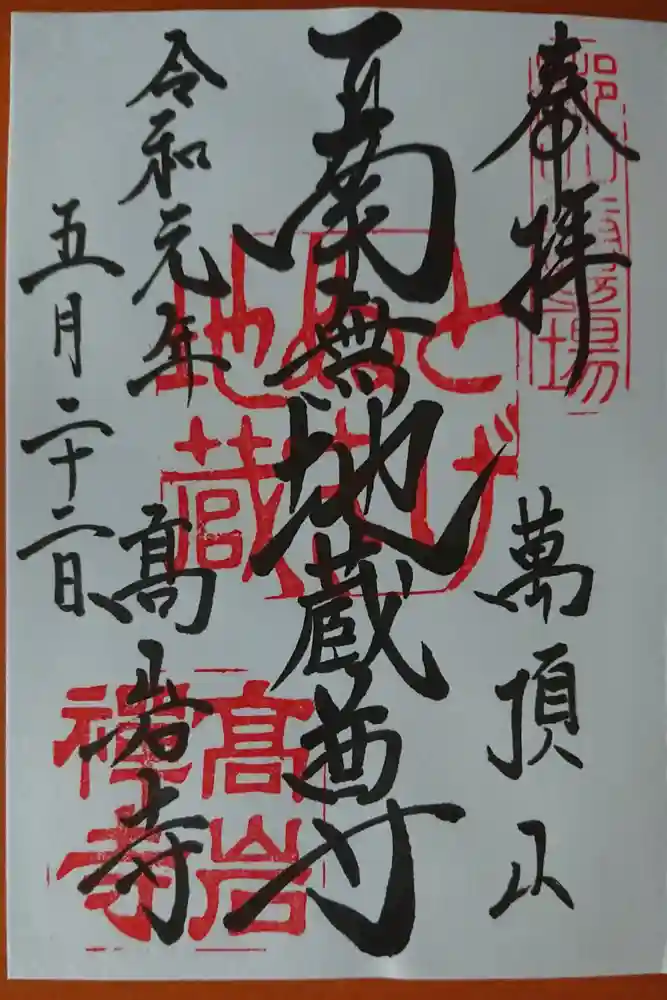 奉拝
萬頂山
南無地蔵尊
高岩寺
令和元年
五月二十二日
とげぬき地蔵
高岩禅寺